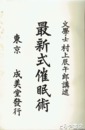 文學士村上辰午郎講述
最新式催眠術
東京 成美堂發行